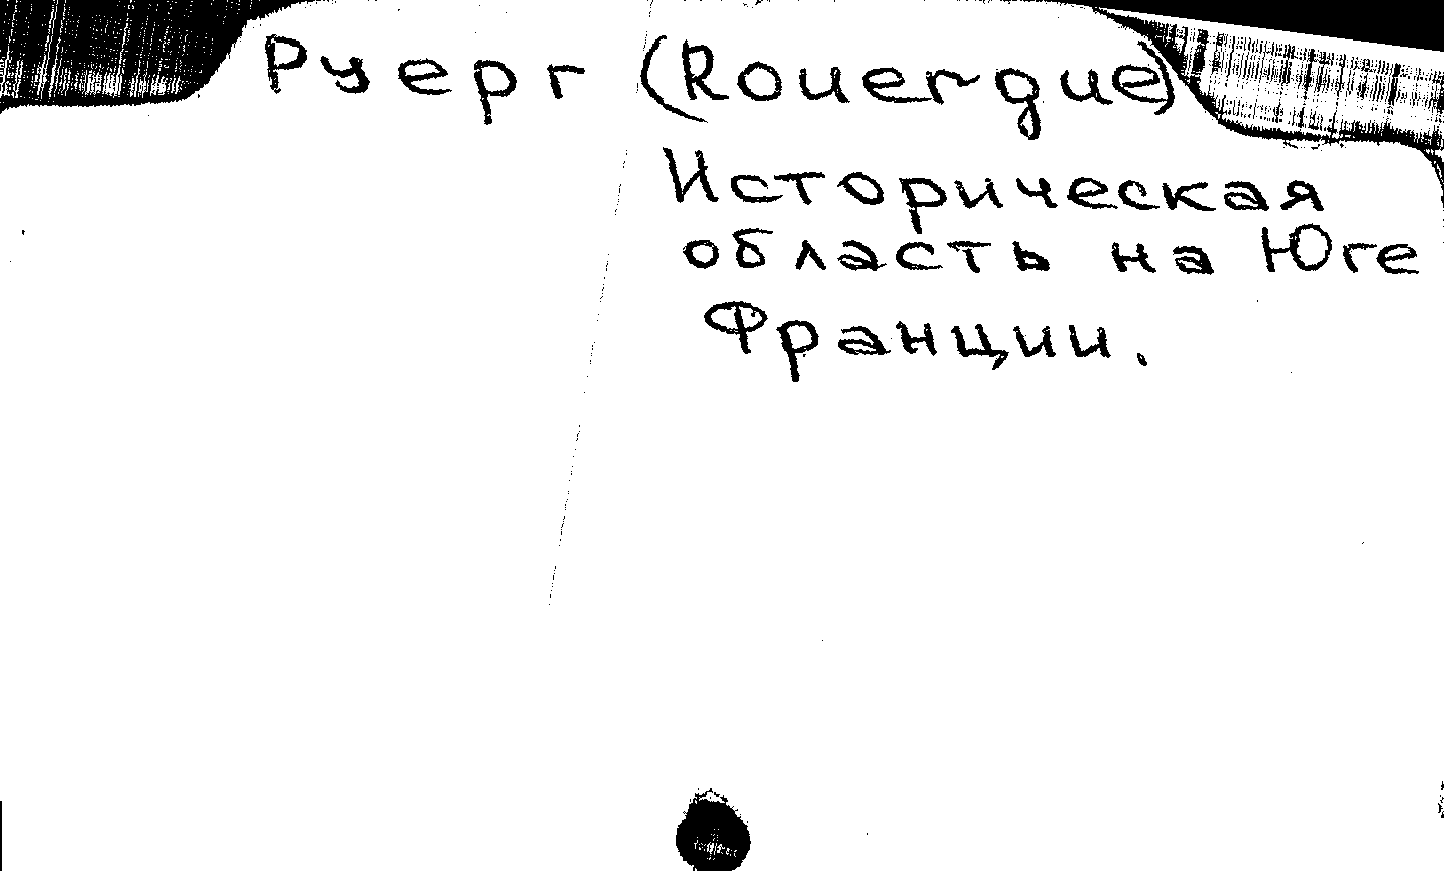 Руерг (Rouergue)
Историческая
область на Юге
Франции.